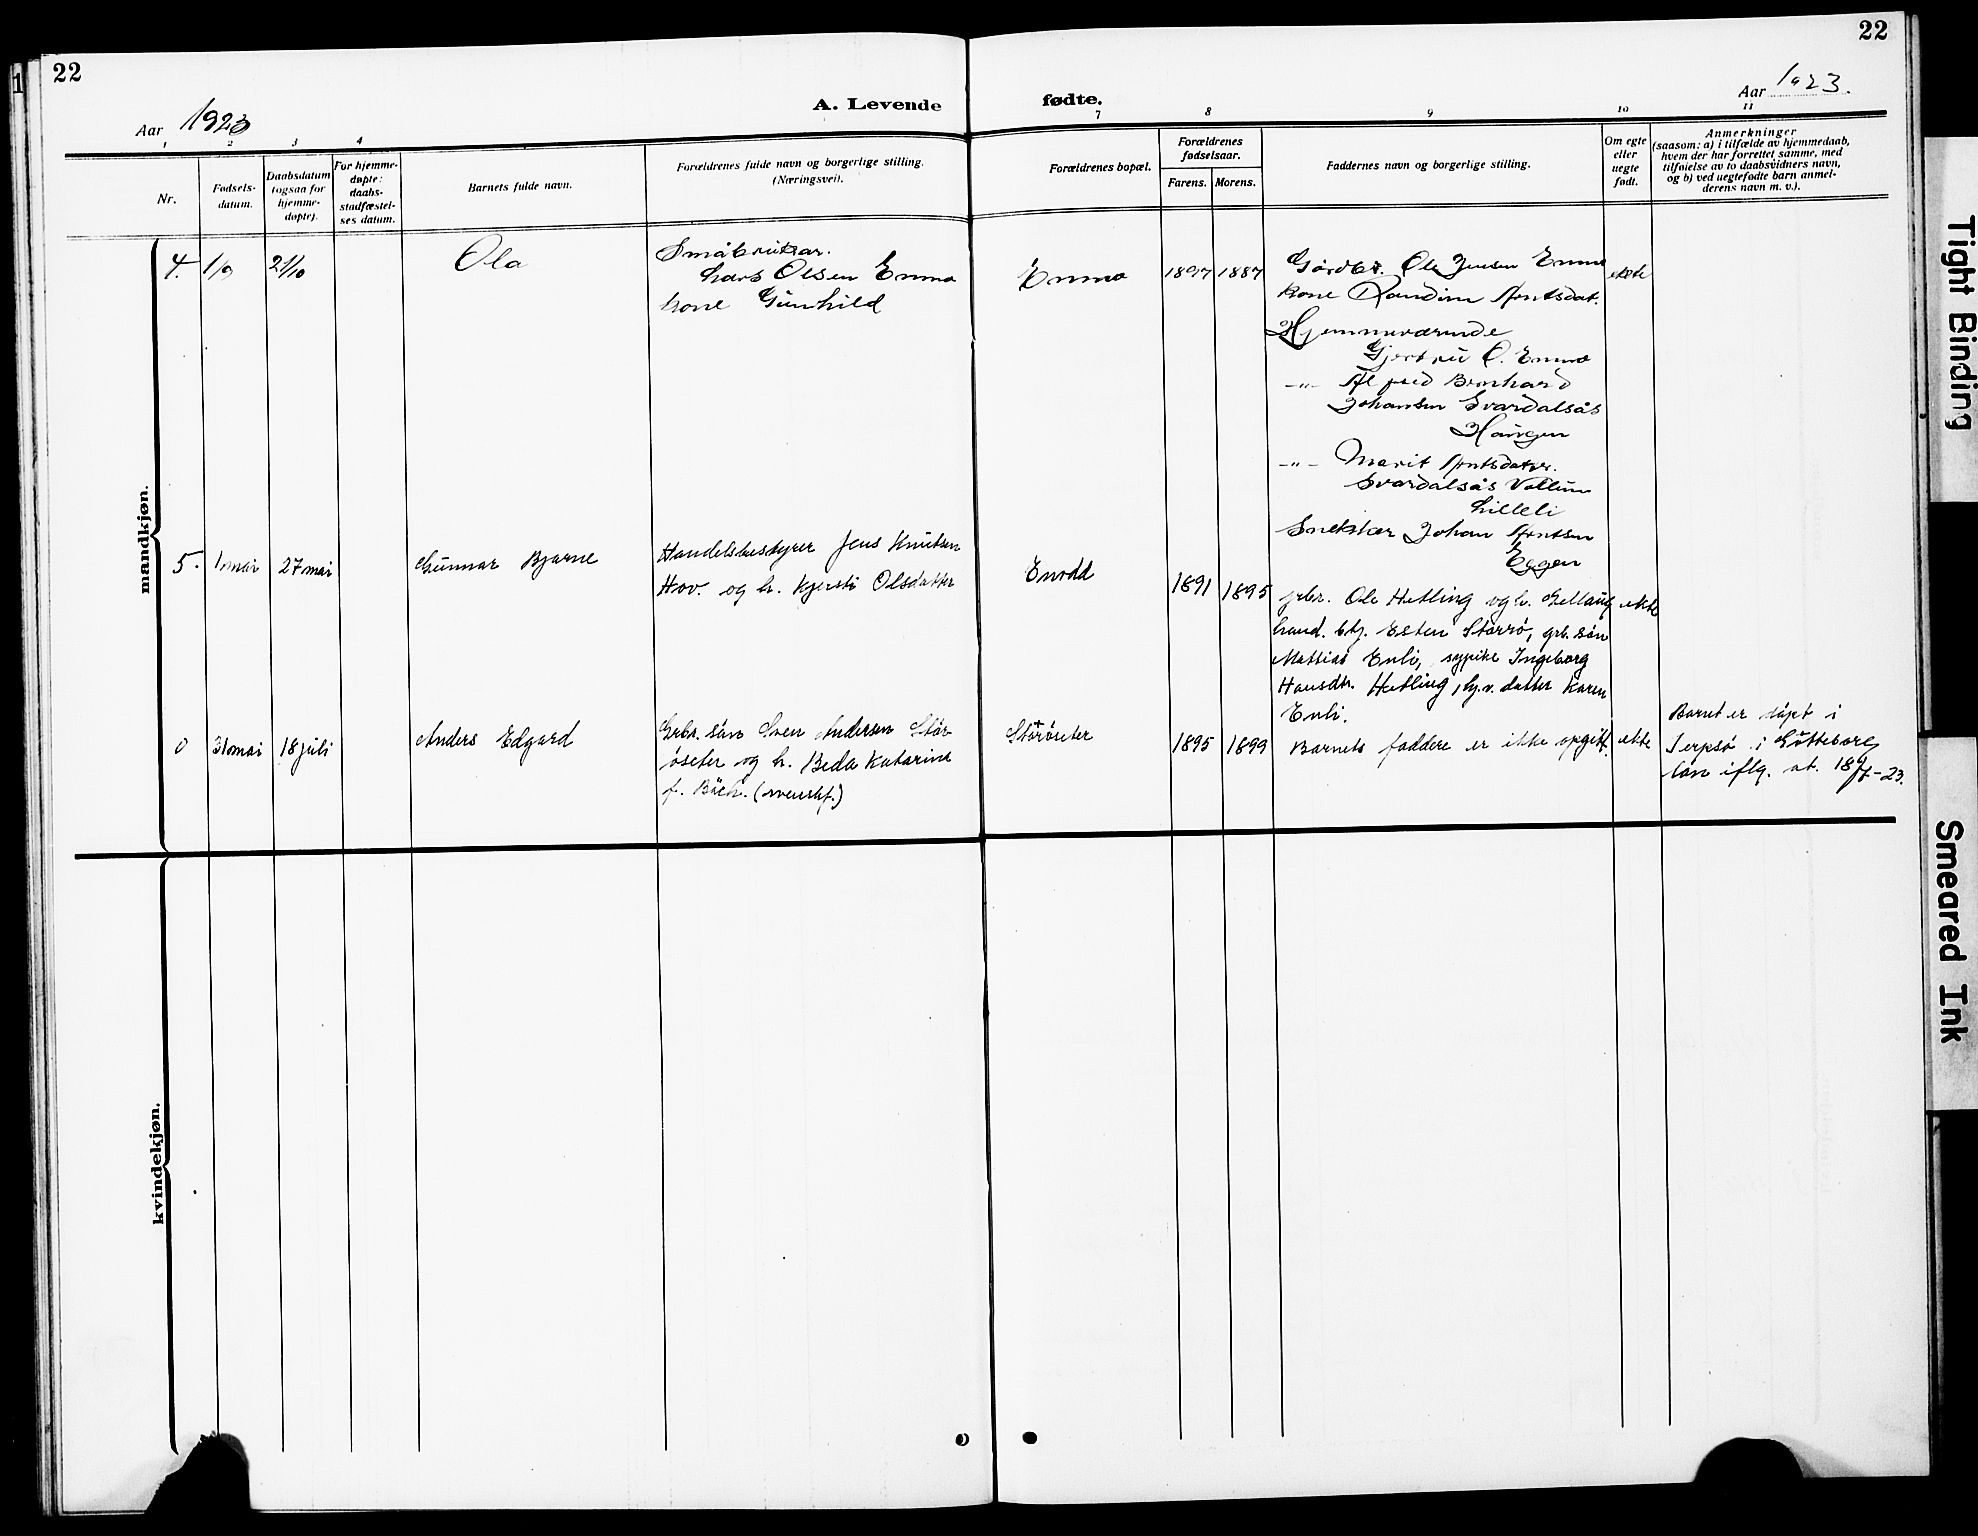 22
22
1
Aar 1923
A. Levende
fødte.
Aar 1923.
1 2 3 4 7 8 9 10 11
Nr.
Fødsels-
datum.
Daabsdatum
(ogsaa for
hjemme-
døpte).
For hjemme-
døpte:
daabs-
stadfæstel-
ses datum.
Barnets fulde navn.
Forældrenes fulde navn og borgerlige stilling.
(Næringsvei).
Forældrenes bopæl.
Forældrenes
fødselsaar.
Farens. Morens.
Faddernes navn og borgerlige stilling.
Om egte
eller
uegte
født.
Anmerkninger
(saasom: a) i tilfælde av hjemmedaab,
hvem der har forrettet samme, med
tilføielse av to daabsvidners navn,
og b) ved uegtefødte barn anmel-
derens navn m. v.).
mandkjøn.
4. 1/9 21/10
Ola
Småbruker.
Lars Olsen Enmo
kone Gunhild
Enmo
1897 1887
Gårdbr. Ole Jensen Enmo
kone Randine Arntsdat.
Hjemmeværende
Gjertru O. Enmo
-"- Alfred Bernhard
Johansen Svardalsås
Haugen
-"- Marit Arntsdatter.
Svardalsås Vollum
Lilleli
Snekker Johan Arntsen
Eggen
ekte
5. 1 mai 27 mai
Gunnar Bjarne
Handelsbestyrer Jens Knutsen
Hov. og h. Kjersti Olsdatter
Enodd
1891 1895
grbr. Ole Hutling og h. Gellaug
hand. btj. Esten Storrø, grb. søn
Mattias Enli, sypike Ingeborg
Hansdtr. Hutling, hj.v. datter Karen
Enli.
ekte
0 31 mai 18 juli
Anders Edgard
Grbr. søn Sven Andersen Stor-
øseter og h. Beda Katarina
f. Bäck. (svensk f.)
Storøseter
1895 1899
Barnets faddere er ikke opgitt.
ekte
Barnet er døpt i
i Gøtteborg
län iflg. at. 18/7-23.
kvindekjøn.
Tight Binding
Smeared Ink